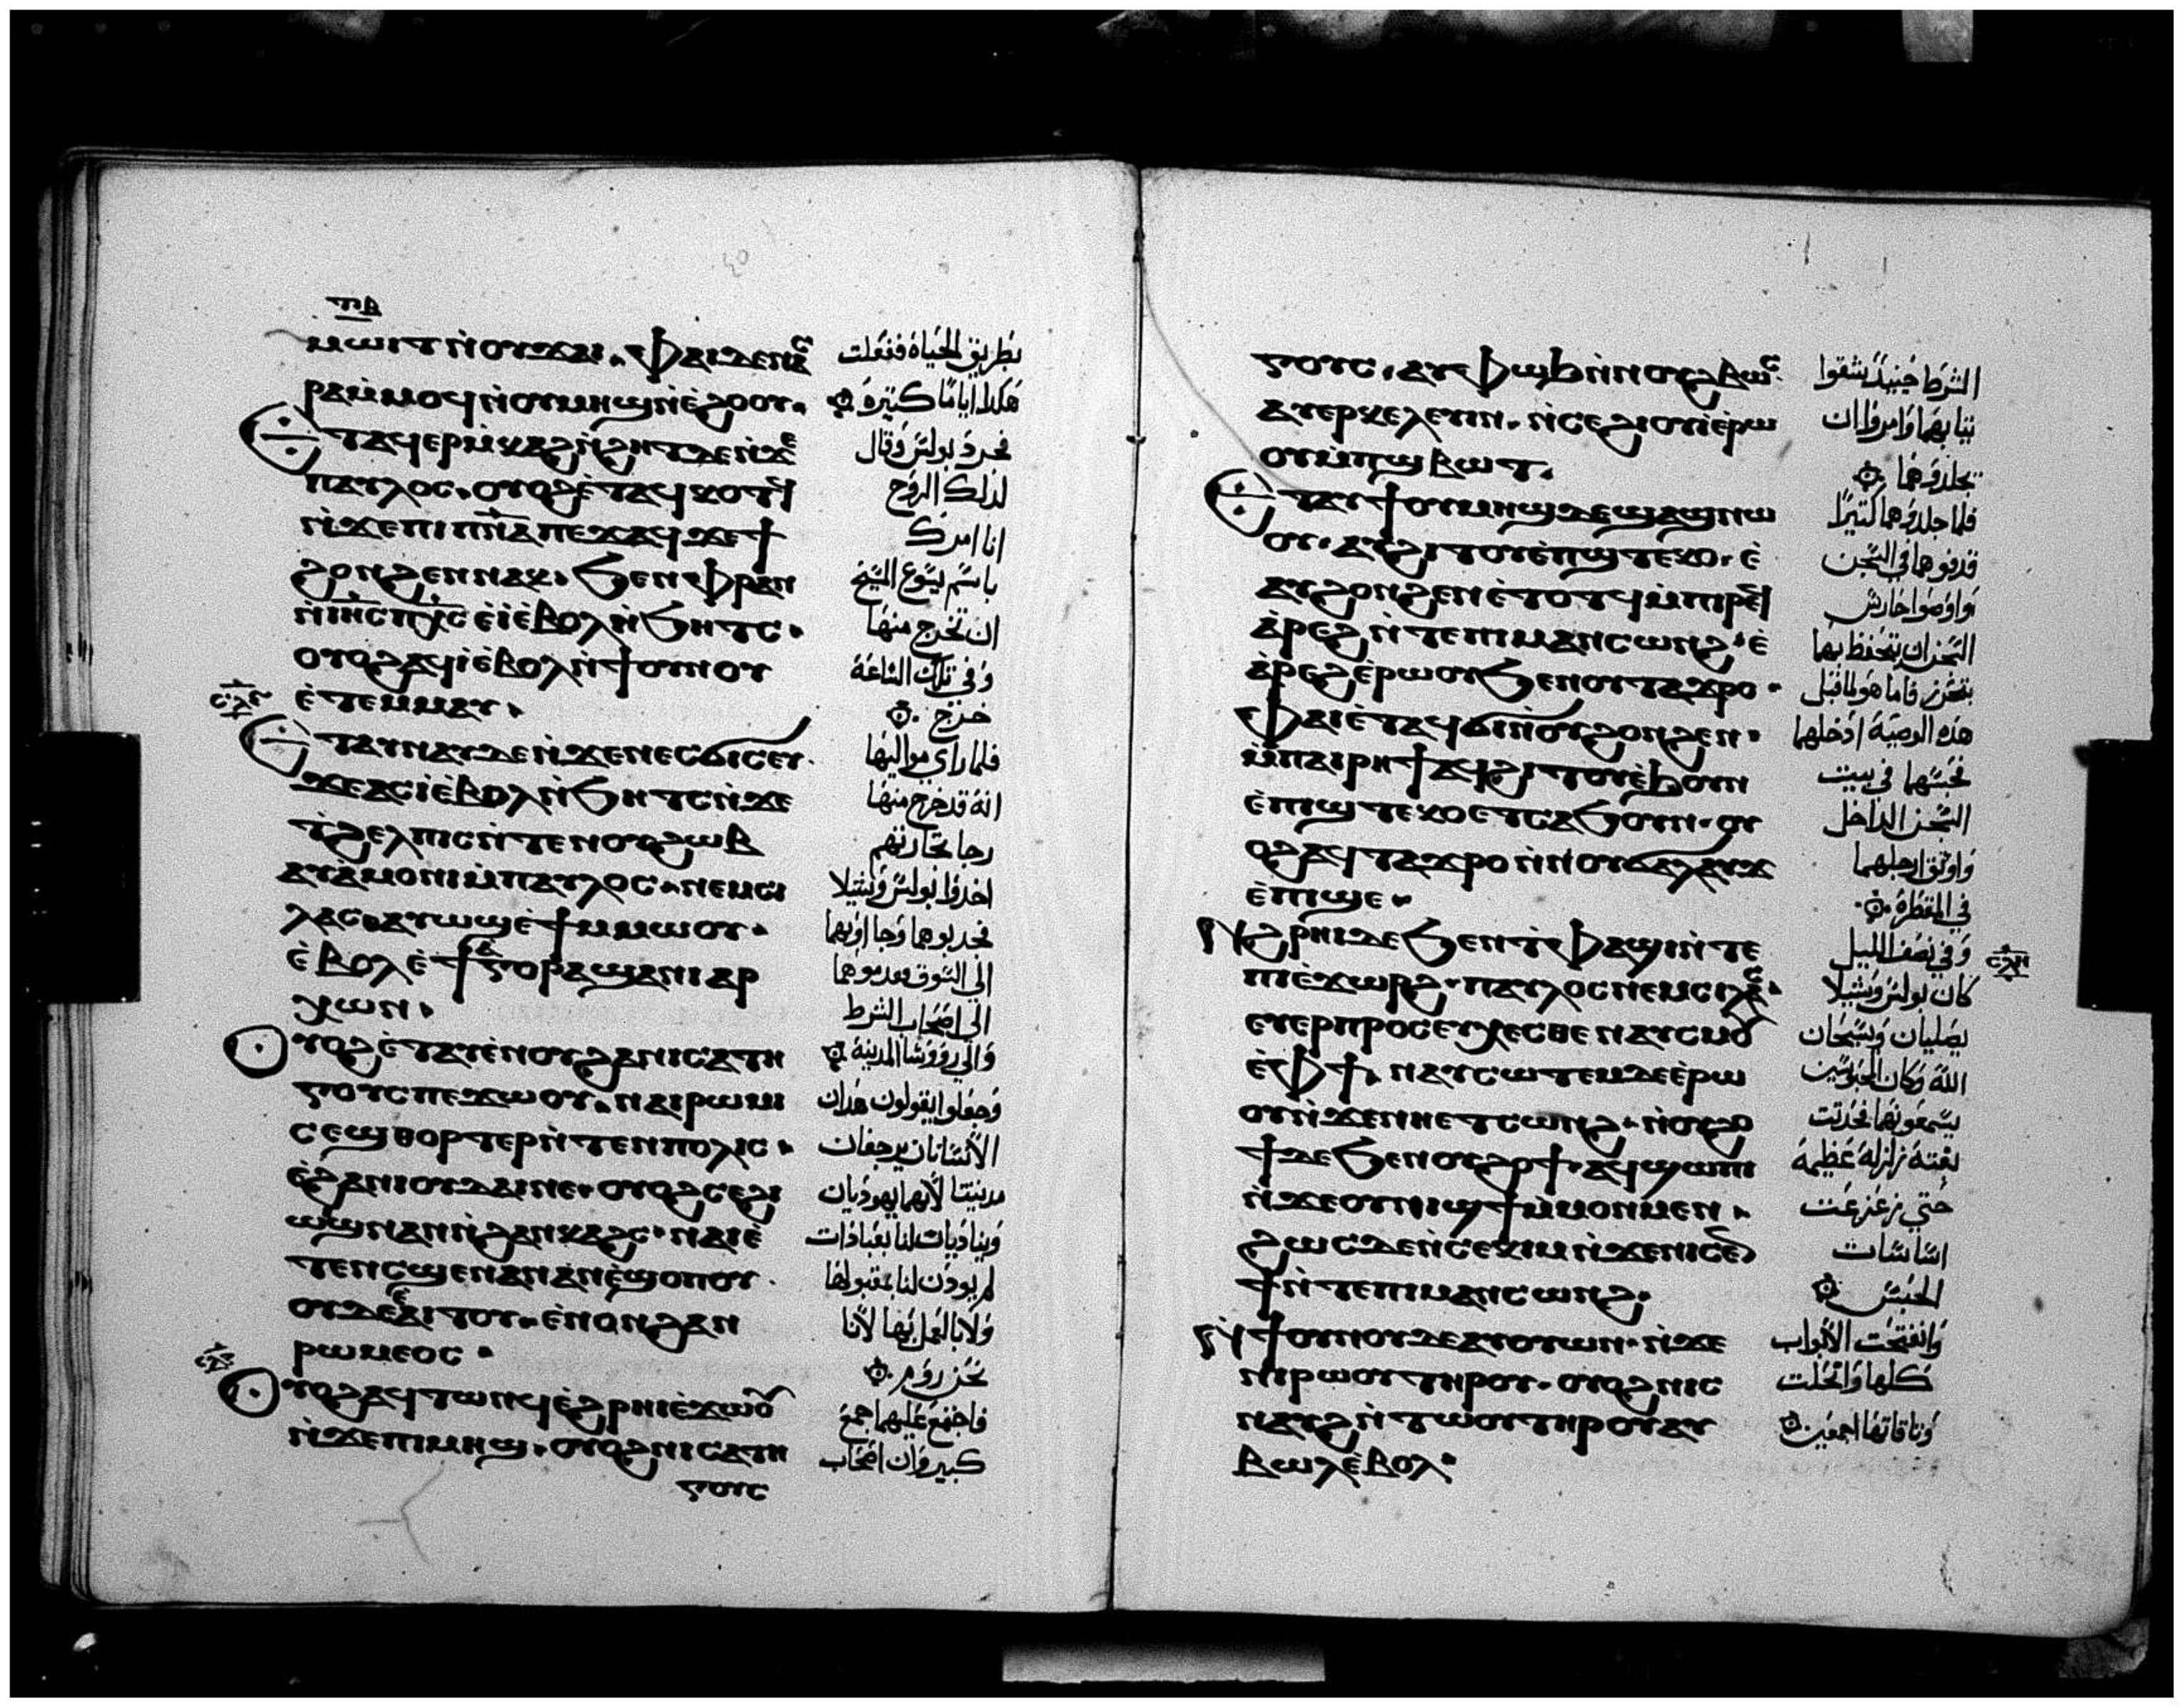 ⲡⲃ
ⲙⲱⲓⲧ ⲛ̀ⲟⲩϫⲁⲓ. ⲫⲁⲓ ⲇⲉ ⲛⲁⲥ
ⲣⲁ ⲙ̀ⲙⲟϥ ⲛ̀ⲟⲩⲙⲏϣ ⲛ̀ⲉ̀ϩⲟⲟⲩ.
ⲉⲧⲁϥⲉⲣⲙ̀ⲕⲁϩ ⲛ̀ϩⲏⲧ ⲇⲉ ⲛ̀ϫⲉ
ⲡⲁⲩⲗⲟⲥ. ⲟⲩⲟϩ ⲉ̀ⲧⲁϥⲕⲟⲧϥ
ⲛ̀ϫⲉ ⲡⲓⲡ̅ⲛ̅ⲁ ⲡⲉϫⲁϥ ϫⲉ ϯ
ϩⲟⲛϩⲉⲛ ⲛⲁⲕ. ϧⲉⲛ ⲫⲣⲁⲛ
ⲛ̀ⲓⲏ̅ⲥ̅ ⲡⲭ̅ⲥ̅ ⲉ̀ⲓ̀ ⲉ̀ⲃⲟⲗ ⲛ̀ϧⲏⲧⲥ.
ⲟⲩⲟϩ ⲁϥⲓ̀ ⲉ̀ⲃⲟⲗ ⲛ̀ϯⲟⲩⲛⲟⲩ
ⲉ̀ⲧⲉⲙⲙⲁⲩ.
ⲉⲧⲁⲩⲛⲁⲩ ⲇⲉ ⲛ̀ϫⲉ ⲛⲉⲥϭⲓⲥⲉⲩ.
ϫⲉ ⲁⲥⲓ̀ ⲉ̀ⲃⲟⲗ ⲛ̀ϧⲏⲧⲥ ⲛ̀ϫⲉ
ⲧ̀ϩⲉⲗⲡⲓⲥ ⲛ̀ⲧⲉ ⲛⲟⲩϩⲱⲃ
ⲁⲩⲁ̀ⲙⲟⲛⲓ ⲙ̀ⲡⲁⲩⲗⲟⲥ. ⲛⲉⲙ ⲥⲓ
ⲗⲁⲥ. ⲁⲩⲱϣⲉ̀ϯ ⲙ̀ⲙⲱⲟⲩ.
ⲉ̀ⲃⲟⲗ ⲉ̀ϯⲁ̀ⲅⲟⲣⲁ ϣⲁ ⲛⲓⲁⲣ
ⲭⲱⲛ.
ⲟⲩⲟϩ ⲉ̀ⲧⲁⲩⲉ̀ⲛⲟⲩ ϩⲁ ⲛⲓⲥⲁⲧⲏ
ⲅⲟⲩⲥ ⲡⲉϫⲱⲟⲩ. ⲛⲁⲓⲣⲱⲙⲓ
ⲥⲉϣⲑⲟⲣⲧⲉⲣ ⲛ̀ⲧⲉⲛⲡⲟⲗⲓⲥ.
ⲉ̀ϩⲁⲛⲓⲟⲩⲇⲁⲓ ⲛⲉ. ⲟⲩⲟϩ ⲥⲉϩⲓ
ⲱⲓϣ ⲛⲁⲛ ⲛ̀ϩⲁⲛⲕⲁϩⲥ. ⲛⲁⲓ ⲉ̀
ⲧⲉⲛⲥϣⲉ ⲛⲁⲛ ⲁⲛ ⲉ̀ϣⲟⲡⲟⲩ.
ⲟⲩⲇⲉ ⲉ̀ⲁⲓⲧⲟⲩ. ⲉ̀ⲛⲟⲛϩⲁⲛ
ⲣⲱⲙⲉⲟⲥ.
ⲟⲩⲟϩ ⲁϥⲧⲱⲛϥ ⲉ̀ϩⲣⲏⲓ ⲉ̀ϫⲱⲟⲩ
ⲛ̀ϫⲉ ⲡⲓⲙⲏϣ. ⲟⲩⲟϩ ⲛⲓⲥⲁⲧⲏ
ⲅⲟⲩⲥ
بطريق الحياة ففعلت
هكدا اياما كتيرة
فحرد بولس وقال
لدلك الروح
انا امرك
باسم يسوع المسيح
ان تخرج منها
وفي تلك الساعة
خرج
فلما راي مواليها
انه قد خرج منها
رجا تجارتهم
اخدوا بولس وشيلا
فجدبوهما وجا اوبهما
الي السوق
الي اصحاب الشرط
والي روؤسا المدينة
وجعلوا يقولون هدان
الانسانان يرجفان
مدينتنا لانهما يهوديان
ويناديان لنا بعبادات
لم يودن لنا بقبولها
ولا بالعمل بها لانا
نحن روم
فاجتمع عليهما جمع
كبير وان اصحاب
ⲅⲟⲩⲥ. ⲁⲩⲫⲱϧ ⲛ̀ⲛⲟⲩϩⲃⲱⲥ.
ⲁⲩⲉⲣⲕⲉⲗⲉⲩⲓⲛ. ⲛ̀ⲥⲉϩⲓⲟⲩⲓ̀ ⲉ̀ⲣⲱ
ⲟⲩ ⲙ̀ⲡϣⲃⲱⲧ.
ⲉⲧⲁⲩϯ ⲟⲩⲙⲏϣ ⲇⲉ ϣⲁϣ ⲛⲱ
ⲟⲩ. ⲁⲩϩⲓⲧⲟⲩ ⲉ̀ⲡϣⲧⲉⲕⲟ. ⲉ̀
ⲁⲩϩⲟⲛϩⲉⲛ ⲉ̀ⲧⲟⲧϥ ⲙ̀ⲡⲓⲣⲉϥ
ⲁ̀ⲣⲉϩ ⲛ̀ⲧⲉ ⲡⲓⲙⲁⲛⲥⲱⲛϩ. ⲉ̀
ⲁ̀ⲣⲉϩ ⲉ̀ⲣⲱⲟⲩ ϧⲉⲛ ⲟⲩⲧⲁϫⲣⲟ.
ⲫⲁⲓ ⲉ̀ⲧⲁϥϭⲓ ⲛ̀ⲟⲩϩⲟⲛϩⲉⲛ.
ⲙ̀ⲡⲁⲓⲣⲏϯ ⲁϥϩⲓⲧⲟⲩ ⲉ̀ϧⲟⲩⲛ
ⲉ̀ⲡⲓϣⲧⲉⲕⲟ ⲉⲧⲥⲁϧⲟⲩⲛ. ⲟⲩ
ⲟϩ ⲁϥⲧⲁϫⲣⲟ ⲛ̀ⲛⲟⲩϭⲁⲗⲁⲩϫ
ⲉ̀ⲡⲓϣⲉ.
ⲛϩⲣⲏⲓ ⲇⲉ ϧⲉⲛ ⲧ̀ⲫⲁϣⲓ ⲛ̀ⲧⲉ
ⲡⲓⲉ̀ϫⲱⲣϩ. ⲡⲁⲩⲗⲟⲥ ⲛⲉⲙ ⲥⲓⲗⲁⲥ.
ⲉⲩⲉⲣⲡⲣⲟⲥⲉⲩⲭⲉⲥⲑⲉ ⲛⲁⲩⲥⲙⲟⲩ
ⲉ̀ⲫϯ. ⲛⲁⲩⲥⲱⲧⲉⲙ ⲇⲉ ⲉ̀ⲣⲱ
ⲟⲩ ⲛ̀ϫⲉ ⲛⲏⲉⲧⲥⲱⲛϩ. ⲛ̀ⲟⲩϩⲟ
ϯ ⲇⲉ ϧⲉⲛ ⲟⲩϩⲟϯ. ⲁϥϣⲱⲡⲓ
ⲛ̀ϫⲉ ⲟⲩⲛⲓϣϯ ⲙ̀ⲙⲟⲛⲙⲉⲛ.
ϩⲱⲥ ⲇⲉ ⲛ̀ⲥⲉⲕⲓⲙ ⲛ̀ϫⲉ ⲛⲓⲥⲉⲛ
ϯ ⲛ̀ⲧⲉ ⲡⲓⲙⲁⲛⲥⲱⲛϩ.
ϧⲉⲛ ϯⲟⲩⲛⲟⲩ ⲇⲉ ⲁⲩⲟⲩⲱⲛ. ⲛ̀ϫⲉ
ⲛⲓⲣⲱⲟⲩ ⲧⲏⲣⲟⲩ. ⲟⲩⲟϩ ⲛⲓⲥ
ⲛⲁⲩϩ ⲛ̀ⲧⲱⲟⲩ ⲧⲏⲣⲟⲩ ⲁⲩ
ⲃⲱⲗ ⲉ̀ⲃⲟⲗ.
الشرط حينيد شقوا
تيابهما وامروا ان
تجلدوهما
فلما جلدوهما كتيرا
قدفوهما في السجن
واوصوا حارس
السجن ان يتحفظ بهما
بتحرز فاما هو لما قبل
هده الوصية ادخلهما
فحبسهما في بيت
السجن الداخل
واوتق ارجلهما
في المقطرة
وفي نصف الليل
كان بولس وشيلا
يصليان ويسبحان
الله وكان المحبوسين
يسمعونهما فحدتت
بغتة زلزلة عظيمة
حتي تزعزعت
اساسات
الحبس
وانفتحت الابواب
كلها وانحلت
وتاقاتها اجمعين